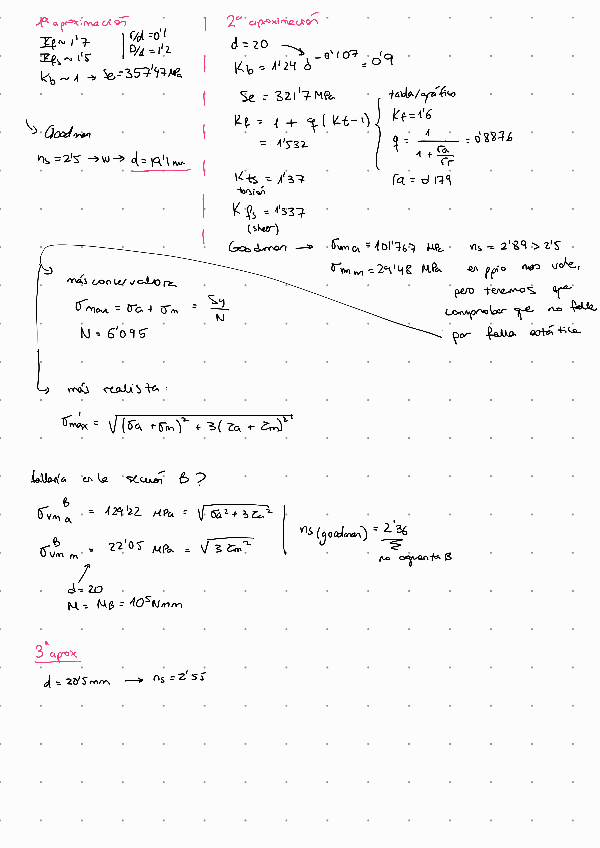 1ª aproximación
Kf ~ 1'7 | r/d = 0'1
Kfs ~ 1'5 | D/d = 1'2
Kb ~ 1 → Se = 357'47 MPa
↳ Goodman
ns = 2'5 → w → d = 19'1 mm
2ª aproximación
d = 20
Kb = 1'24 d^-0'107 = 0'9
Se = 321'7 MPa
Kf = 1 + q (Kt - 1)
= 1'532
tabla/gráfico
Kt = 1'6
q = 1 / (1 + √a/√r) = 0'8876
√a = 0'179
Kts = 1'37
torsión
Kfs = 1'337
(shear)
Goodman → σvm a = 101'767 MPa ns = 2'89 > 2'5
σvm m = 29'48 MPa en ppio nos vale,
pero tenemos que
comprobar que no falle
por falla estática
más conservadora
σmax = σa + σm = Sy/N
N = 6'095
más realista:
σ'máx = √((σa + σm)² + 3(τa + τm)²)
fallaría en la sección B?
σvm a^B = 129'22 MPa = √(σa² + 3τa²)
σvm m^B = 22'05 MPa = √(3τm²)
ns (goodman) = 2'36
no aguanta B
d = 20
M = MB = 10⁵ Nmm
3ª aprox
d = 20'5 mm → ns = 2'55